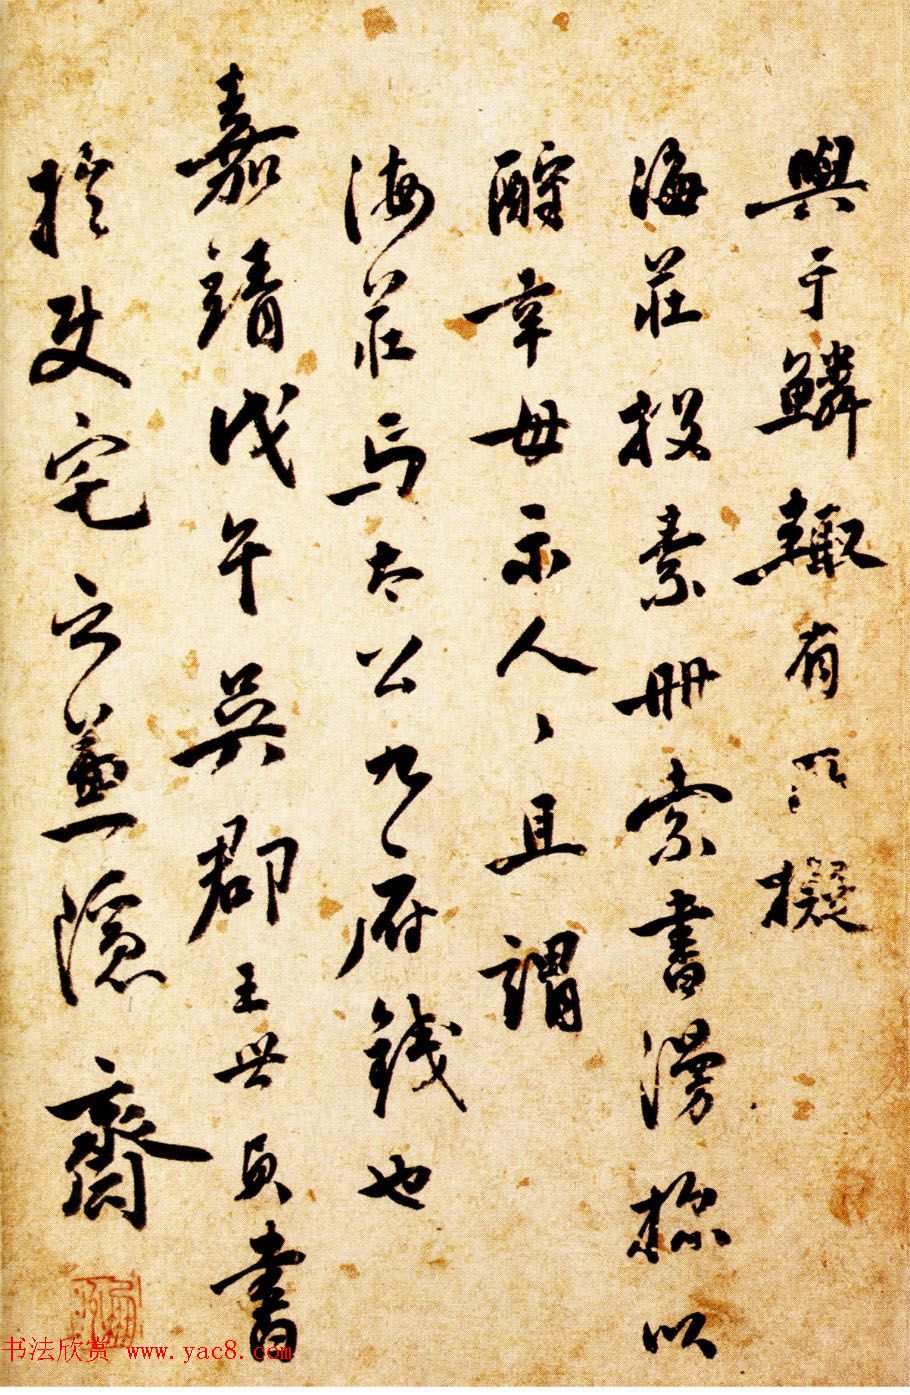 與于鱗輙有所擬
海莊投素冊索書漫以
酧幸毋示人、且謂
海莊太公九府錢也
嘉靖戊午吳郡王世貞書
於宅之兼隱齋
书法欣赏 www.yac8.com